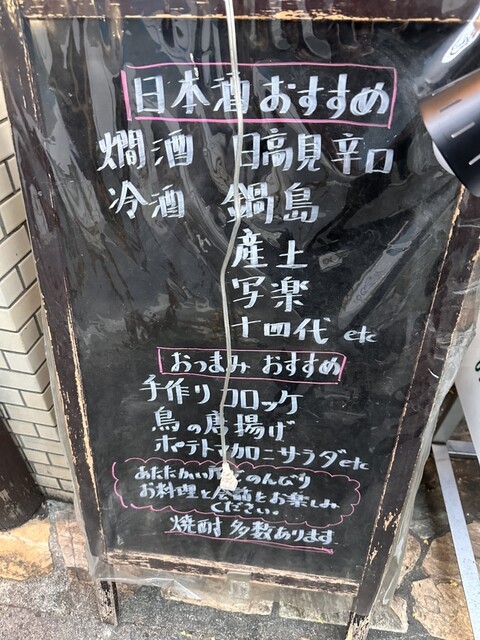 日本酒おすすめ
燗酒 日高見辛口
冷酒 鍋島
産土
写楽
十四代 etc
おつまみ おすすめ
手作りコロッケ
鳥の唐揚げ
ポテトマカロニサラダetc
あたたかい のんびり
お料理と会話をお楽しみ
ください。
焼酎 多数あります